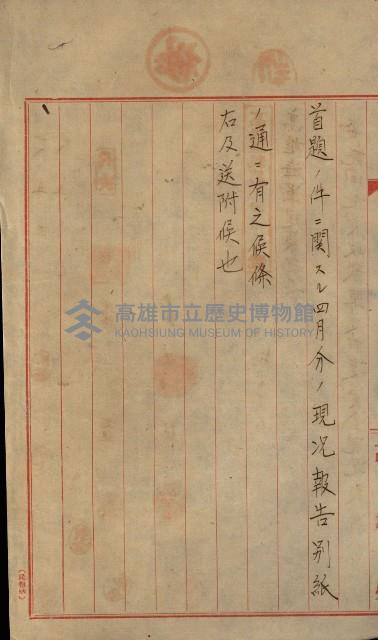 首題ノ件ニ関スル四月分ノ現況報告別紙
ノ通ニ有之候條
右及送附候也
高雄市立歷史博物館
KAOHSIUNG MUSEUM OF HISTORY